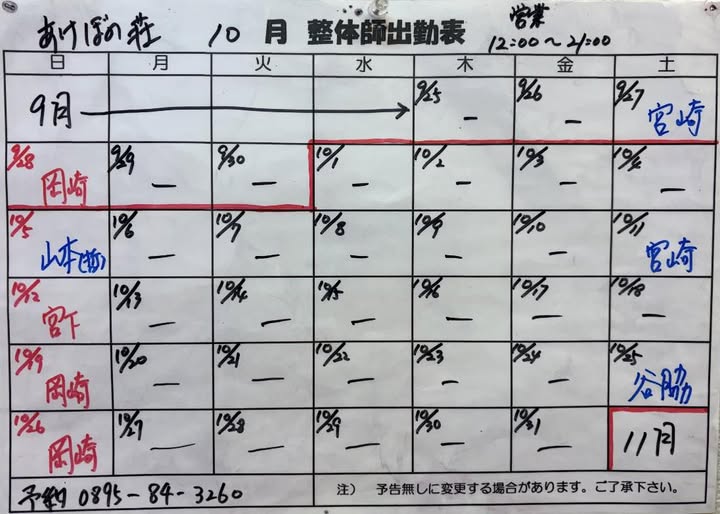 あけぼの荘 10月 整体師出勤表 営業 12:00～21:00
日 月 火 水 木 金 土
9月 → 9/25 － 9/26 － 9/27 宮崎
9/28 岡崎 9/29 － 9/30 － 10/1 － 10/2 － 10/3 － 10/4 －
10/5 山本(哲) 10/6 － 10/7 － 10/8 － 10/9 － 10/10 － 10/11 宮崎
10/12 宮下 10/13 － 10/14 － 10/15 － 10/16 － 10/17 － 10/18 －
10/19 岡崎 10/20 － 10/21 － 10/22 － 10/23 － 10/24 － 10/25 谷脇
10/26 岡崎 10/27 － 10/28 － 10/29 － 10/30 － 10/31 － 11月
予約 0895-84-3260 注） 予告無しに変更する場合があります。ご了承下さい。